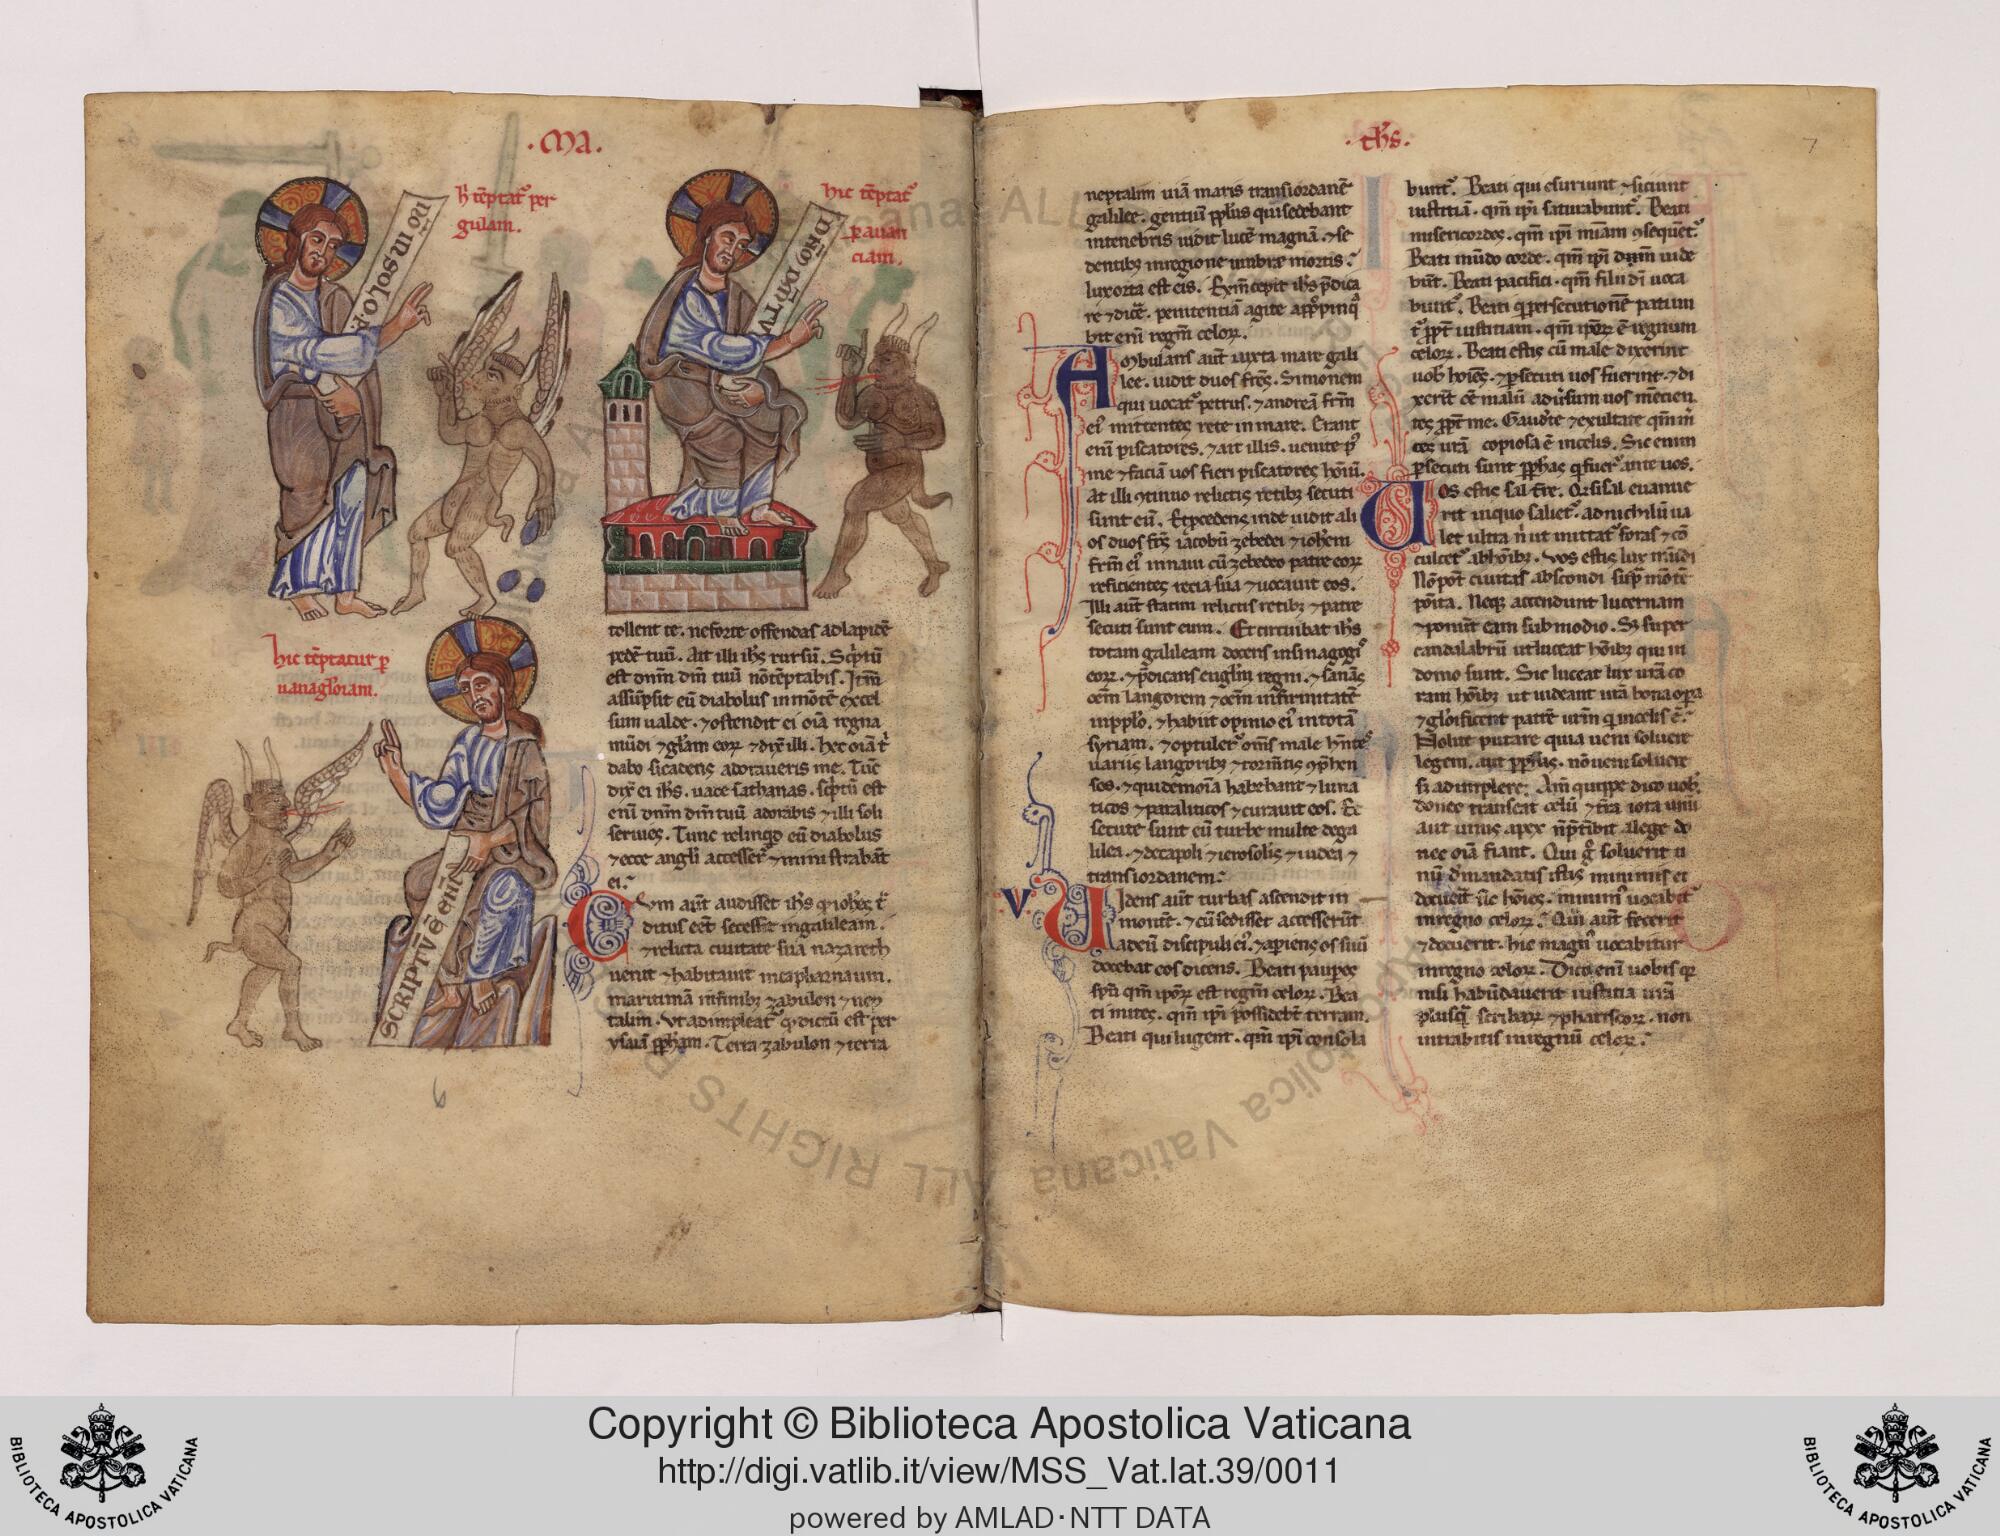 ·MA·
h̅ te̅ptat᷒ per
gulam.
NO̅ IN SOLO P
hic te̅ptat᷒
p̱ auari
ciam.
D̅N̅M̅ D̅M̅ TV̅
hic te̅ptatur p̱
uana gl̅oriam.
SCRIPTV̅ E̅ ENI̅
tollent te. ne forte offendas ad lapide̅
pede̅ tuu̅. Ait illi ih̅s rursu̅. Sc̅ptu̅
est dn̅m dm̅ tuu̅ no̅ te̅ptabis. Ite̅m
assu̅psit eu̅ diabolus in mo̅te̅ excel
sum ualde. ⁊ ostendit ei oi̅a regna
mu̅di ⁊ gl̅am eoꝝ ⁊ dix̅ illi. hec oi̅a t̅
dabo si cadens adoraueris me. Tu̅c
dix̅ ei ih̅s. uade sathanas. sc̅ptu̅ est
eni̅ dn̅m dm̅ tuu̅ adorabis ⁊ illi soli
seruies. Tunc relinqd̅ eu̅ diabolus
⁊ ecce angl̅i accesser̅ ⁊ ministraba̅t
ei.
Cvm aut̅ audisset ih̅s qd̅ ioh̅es t̅
ditus eet̅ secessit in galileam.
⁊ relicta ciuitate sua nazareth
uenit ⁊ habitauit in capharnaum.
maritima̅ in finib; zabulon ⁊ nep
talim. Vt adimpleat᷒ qd̅ dictu̅ est per
ysaia̅ ꝓph̅am. Terra zabulon ⁊ terra
·th̅s·
7
neptalim uia̅ maris trans iordane̅
galilee. gentiu̅ ppl̅us qui sedebant
in tenebris uidit luce̅ magna̅. ⁊ se
dentib; in regione umbræ mortis.
lux orta est eis. Exin̅ cepit ih̅s p̅dica
re ⁊ dice̅. penitentia̅ agite app̅pinq̅
bit eni̅ regn̅m celoꝝ.
Ambulans aut̅ iuxta mare gali
lee. uidit duos fr̅es. Simonem
qui uocat᷒ petrus. ⁊ andrea̅ fr̅m
ei᷒ mittentes rete in mare. Erant
eni̅ piscatores. ⁊ ait illis. uenite p᷒
me ⁊ facia̅ uos fieri piscatores ho̅iu̅.
At illi ꝯtinuo relictis retib; secuti
sunt eu̅. Et p̅cedens inde uidit ali
os duos fr̅s iacobu̅ zebedei ⁊ ioh̅em
fr̅em ei᷒ in naui cu̅ zebedeo patre eoꝝ
reficientes recia sua ⁊ uocauit eos.
Illi aut̅ statim relictis retib; ⁊ patre
secuti sunt eum. Et circuibat ih̅s
totam galileam docens in sinagogis᷒
eoꝝ. ⁊ p̅dicans eugl̅m regni. ⁊ sana̅s
oe̅m langorem ⁊ oe̅m infirmitate̅
in ppl̅o. ⁊ habiit opinio ei᷒ in tota̅
syriam. ⁊ optuler᷒ om̅s male hn̅tes
uariis langorib; ⁊ torm̅tis ꝯp̅hen
sos. ⁊ qui demoia̅ habebant ⁊ luna
ticos ⁊ paraliticos ⁊ curauit eos. Et
secute sunt eu̅ turbe multe de ga
lilea. ⁊ decapoli ⁊ ierosolis̅ ⁊ iudea ⁊
trans iordanem.
·V·
Uidens aut̅ turbas ascendit in
monte̅. ⁊ cu̅ sedisset accesseru̅t
ad eu̅ discipuli ei᷒. ⁊ apiens os suu̅
docebat eos dicens. Beati paup̱es
sp̅u qm̅ ipoꝝ est regn̅m celoꝝ. Bea
ti mites. qm̅ ip̅i posside̅bt terram.
Beati qui lugent. qm̅ ip̅i consola
bunt᷒. Beati qui esuriunt ⁊ siciunt
iustitia̅. qm̅ ip̅i saturabunt᷒. Beati
misericordes. qm̅ ip̅i mi̅am ꝯsequet᷒.
Beati mu̅do corde. qm̅ ip̅i dn̅m uide
bu̅t. Beati pacifici. qm̅ filii di̅ uoca
bunt᷒. Beati q̅ persecutione̅ patiun
t᷒ ꝓpt̅ iustitiam. qm̅ ipoꝝ e̅ regnum
celoꝝ. Beati estis cu̅ male dixerint
uob̅ ho̅ies. ⁊ p̱secuti uos fuerint. ⁊ di
xerit̅ oe̅ malu̅ aduersum uos me̅cien
tes ꝓpt̅ me. Gaudete ⁊ exultate qm̅ m̅
ces ur̅a copiosa e̅ in celis. Sic enim
p̱secuti sunt ꝓph̅as q̅ fuer᷒ ante uos.
Uos estis sal t̅re. Qd̅ si sal euanue
rit in quo saliet᷒. ad nichilu̅ ua
let ultra n̅ ut mittat᷒ foras ⁊ co̅
culcet᷒ ab ho̅ib;. Vos estis lux mu̅di
No̅ pot̅ ciuitas abscondi sup̱ mo̅te̅
po̅ita. Neq; accendunt lucernam
⁊ ponu̅t eam sub modio. Sꝫ super
candalabru̅ ut luceat ho̅ib; qui in
domo sunt. Sic luceat lux ur̅a co
ram ho̅ib; ut uideant ur̅a bona op̱a
⁊ gl̅orificent patre̅ ur̅m q̅ in celis e̅.
Nolite putare quia ueni soluere
legem. aut ꝓph̅as. no̅ ueni soluere
sꝫ adimplere. Am̅ quippe dico uob̅.
donec transeat celu̅ ⁊ t̅ra iota unu̅
aut unus apex n̅ p̅t̅ibit a lege do
nec oi̅a fiant. Qui g̊ soluerit u
nu̅ d̅ mandatis istis minimis et
docuerit̅ sic ho̅ies. minim᷒ uocabit᷒
in regno celoꝝ. Qui aut̅ fecerit
⁊ docuerit. hic magn᷒ uocabitur
in regno celoꝝ. Dico eni̅ uobis qꝛ
nisi habu̅dauerit iustitia ur̅a
plusq̅ scribaꝝ ⁊ phariseoꝝ. non
intrabitis in regnu̅ celoꝝ.
Copyright © Biblioteca Apostolica Vaticana
http://digi.vatlib.it/view/MSS_Vat.lat.39/0011
powered by AMLAD·NTT DATA
BIBLIOTECA APOSTOLICA VATICANA
BIBLIOTECA APOSTOLICA VATICANA